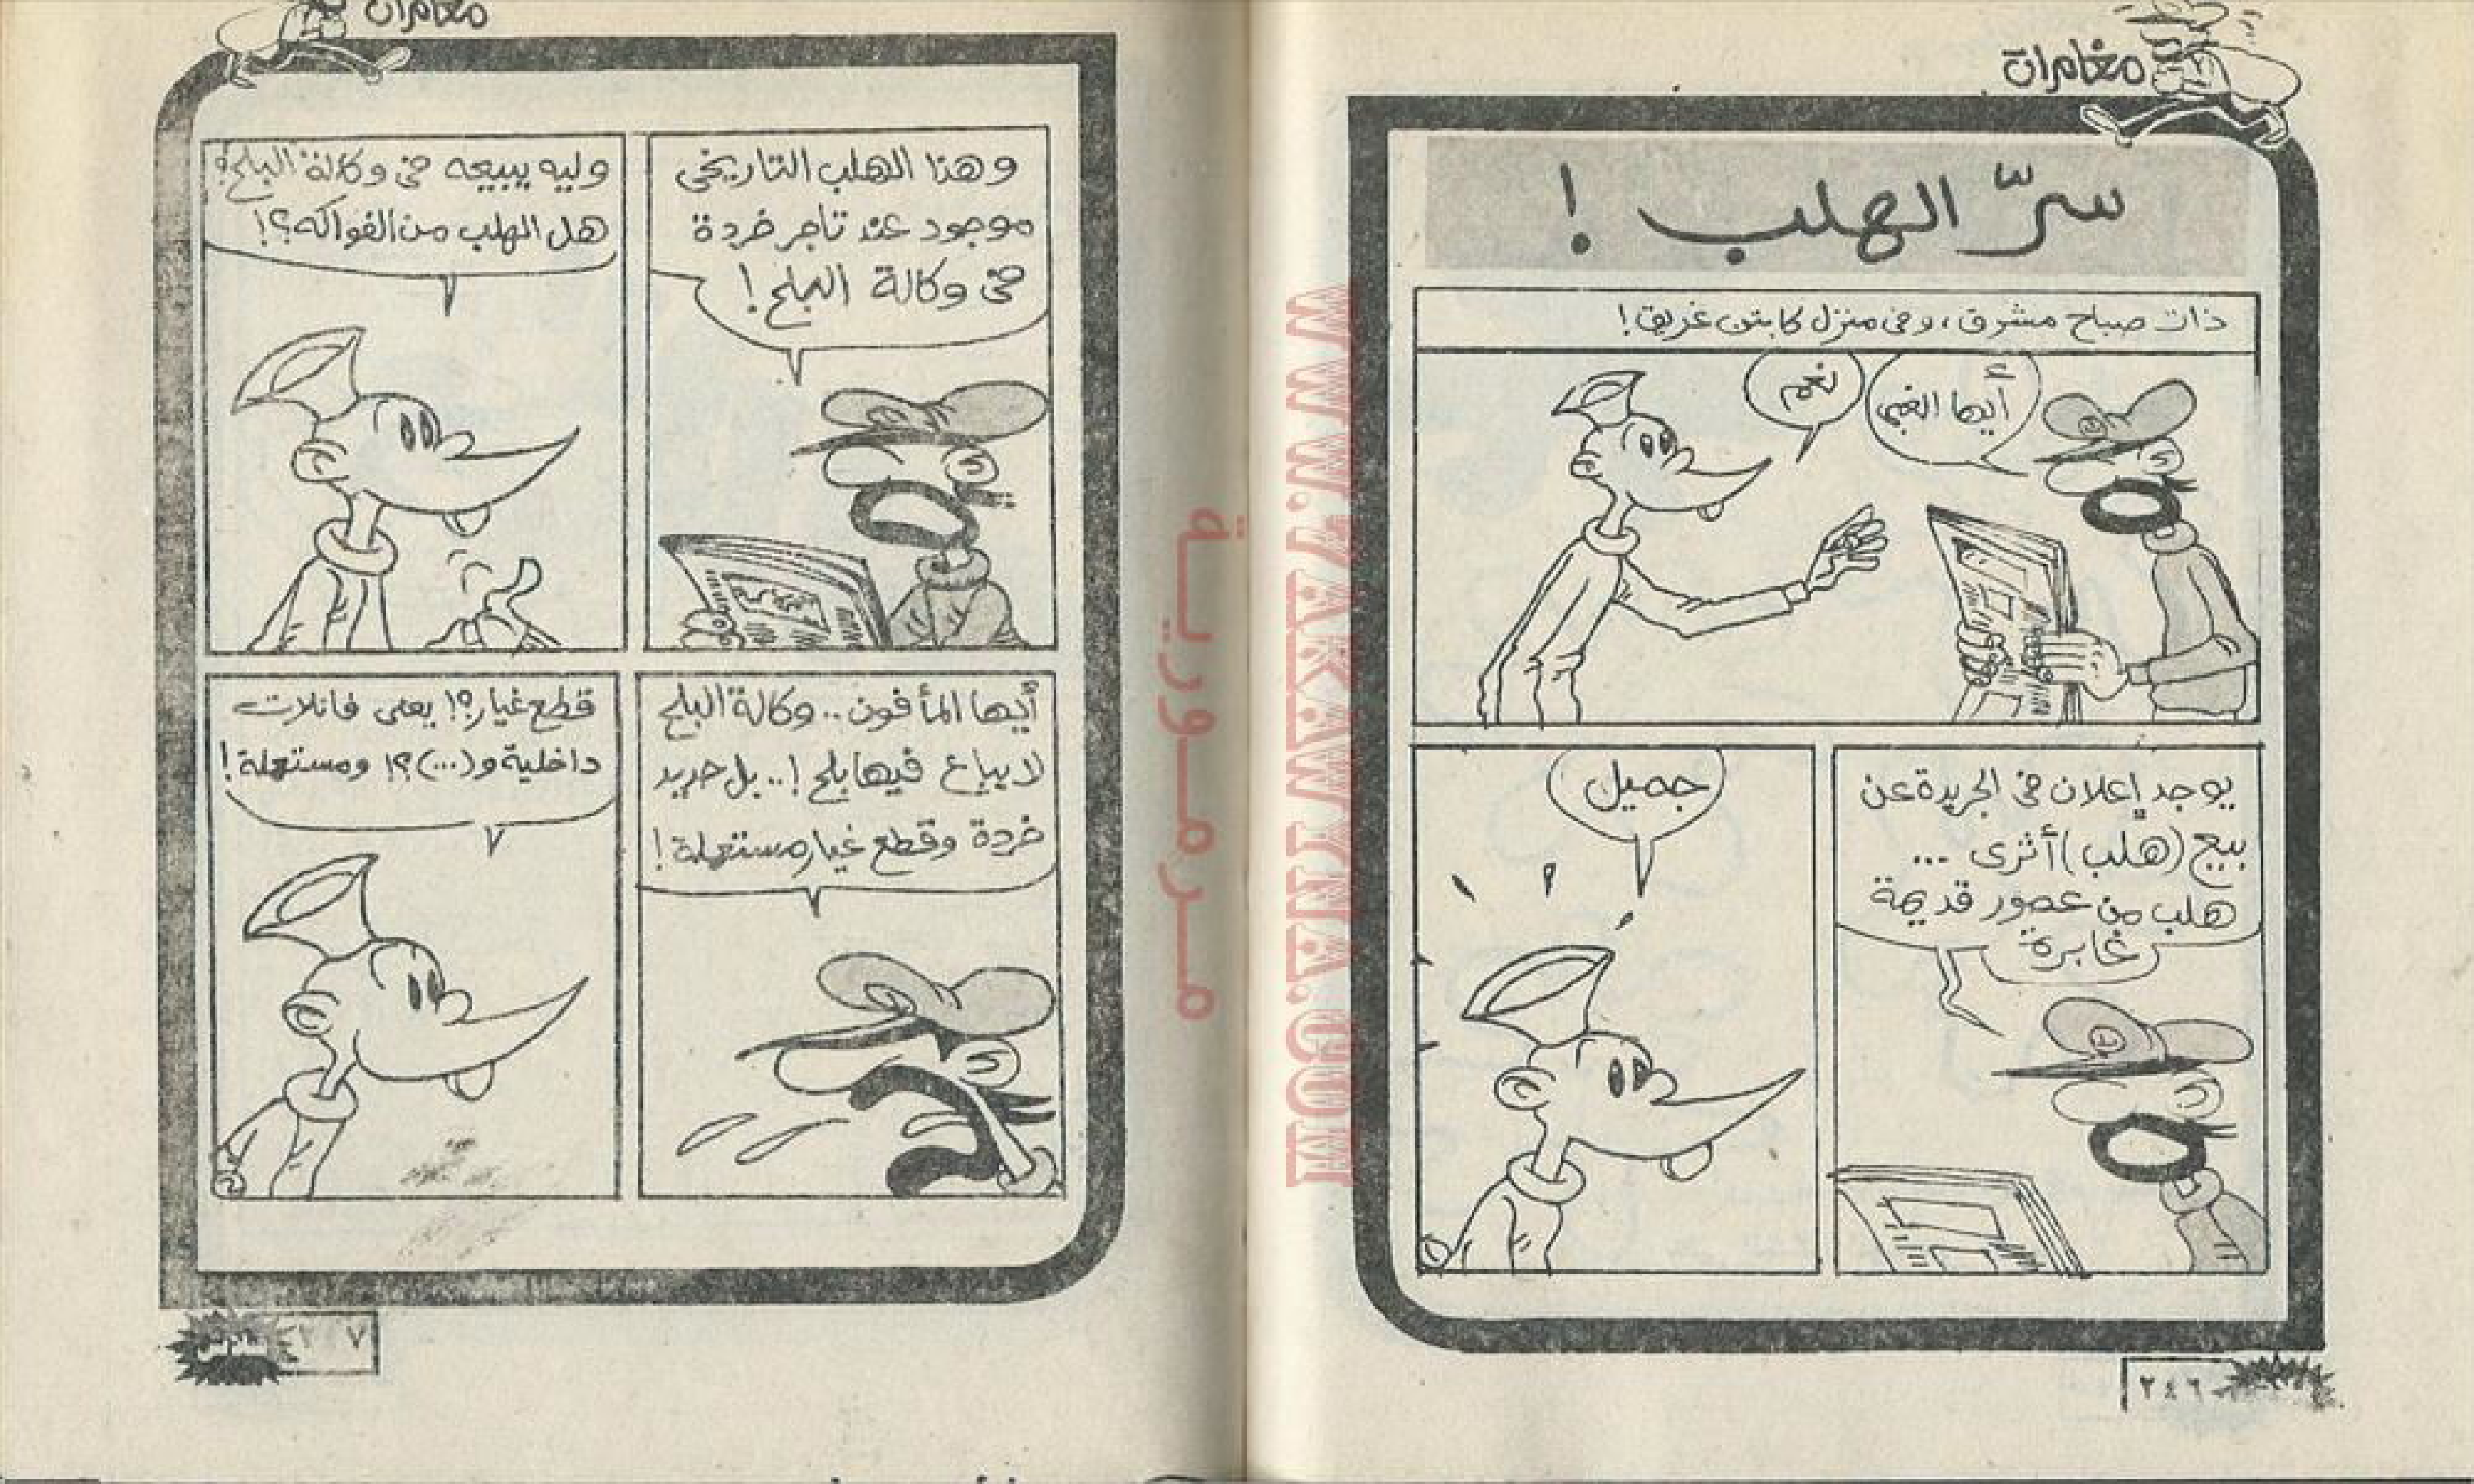 مغامرات
سرّ الهلب !
ذات صباح مشرق ، وفى منزل كابتن غريق !
أيها الغبى
نعم
يوجد إعلان فى الجريدة عن
بيع (هلب) أثرى ...
هلب من عصور قديمة
غابرة
جميل
٢٤٦
مغامرات
وهذا الهلب التاريخى
موجود عند تاجر خردة
فى وكالة البلح !
وليه يبيعه فى وكالة البلح ؟
هل الهلب من الفواكه ؟!
أيها المأفون .. وكالة البلح
لا يباع فيها بلح !.. بل حديد
خردة وقطع غيار مستعملة !
قطع غيار ؟! يعنى فانلات
داخلية و (...) ؟! ومستعملة !
WWW.ZARAMINA.COM